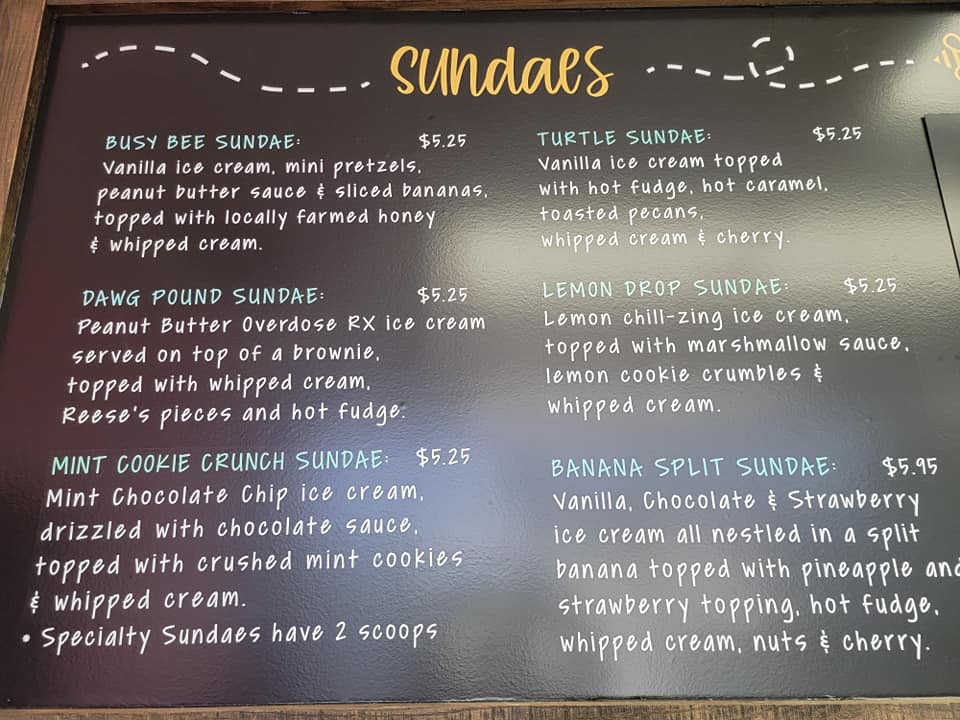 sundaes
BUSY BEE SUNDAE: $5.25
Vanilla ice cream, mini pretzels,
peanut butter sauce & sliced bananas,
topped with locally farmed honey
& whipped cream.
DAWG POUND SUNDAE: $5.25
Peanut Butter Overdose RX ice cream
served on top of a brownie,
topped with whipped cream,
Reese's pieces and hot fudge.
MINT COOKIE CRUNCH SUNDAE: $5.25
Mint Chocolate Chip ice cream,
drizzled with chocolate sauce,
topped with crushed mint cookies
& whipped cream.
• Specialty Sundaes have 2 scoops
TURTLE SUNDAE: $5.25
Vanilla ice cream topped
with hot fudge, hot caramel,
toasted pecans,
whipped cream & cherry.
LEMON DROP SUNDAE: $5.25
Lemon chill-zing ice cream,
topped with marshmallow sauce,
lemon cookie crumbles &
whipped cream.
BANANA SPLIT SUNDAE: $5.95
Vanilla, Chocolate & Strawberry
ice cream all nestled in a split
banana topped with pineapple and
strawberry topping, hot fudge,
whipped cream, nuts & cherry.